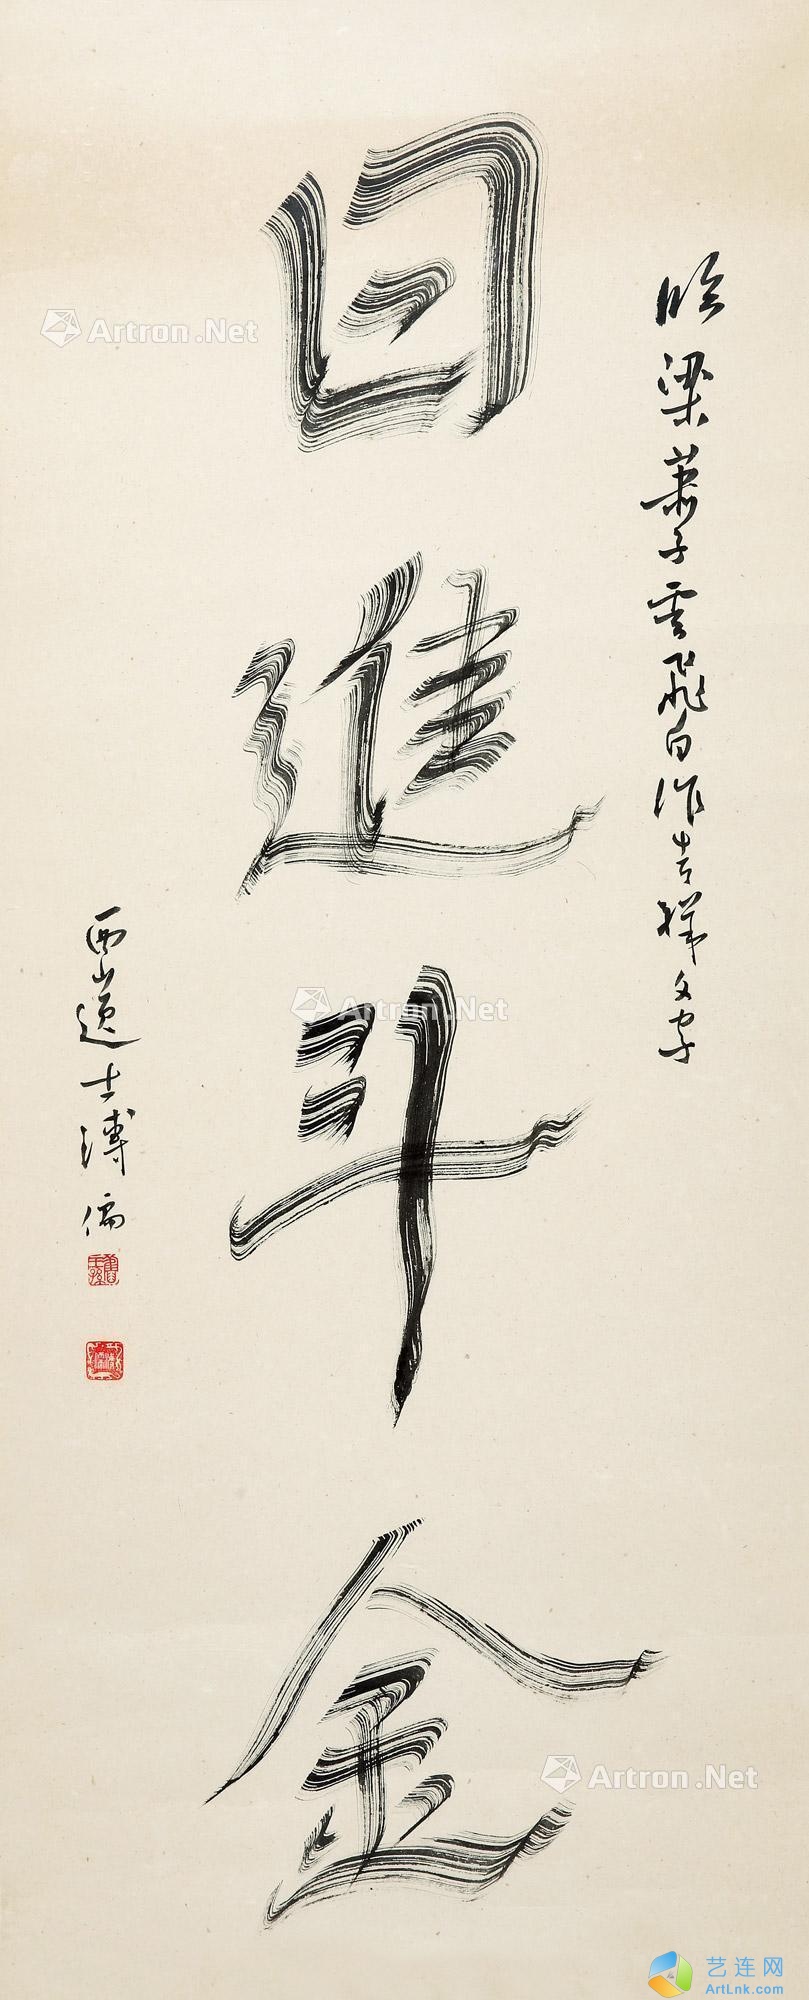 臨梁蕭子雲飛白作吉祥文字
日進斗金
西山逸士溥儒
舊王孫
Artron.Net
Artron.Net
Artron.Net
艺连网
ArtLnk.com